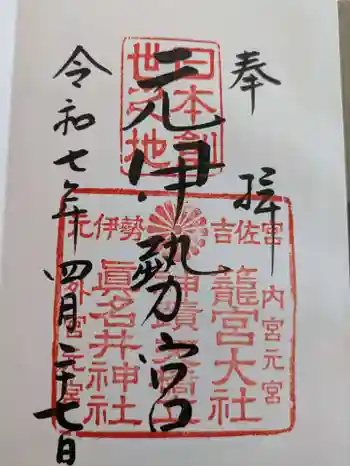 奉拝
日本創
世之地
元伊勢宮
元伊勢 吉佐宮
内宮元宮
籠宮大社
眞名井神社
外宮元宮
令和七年四月二十七日